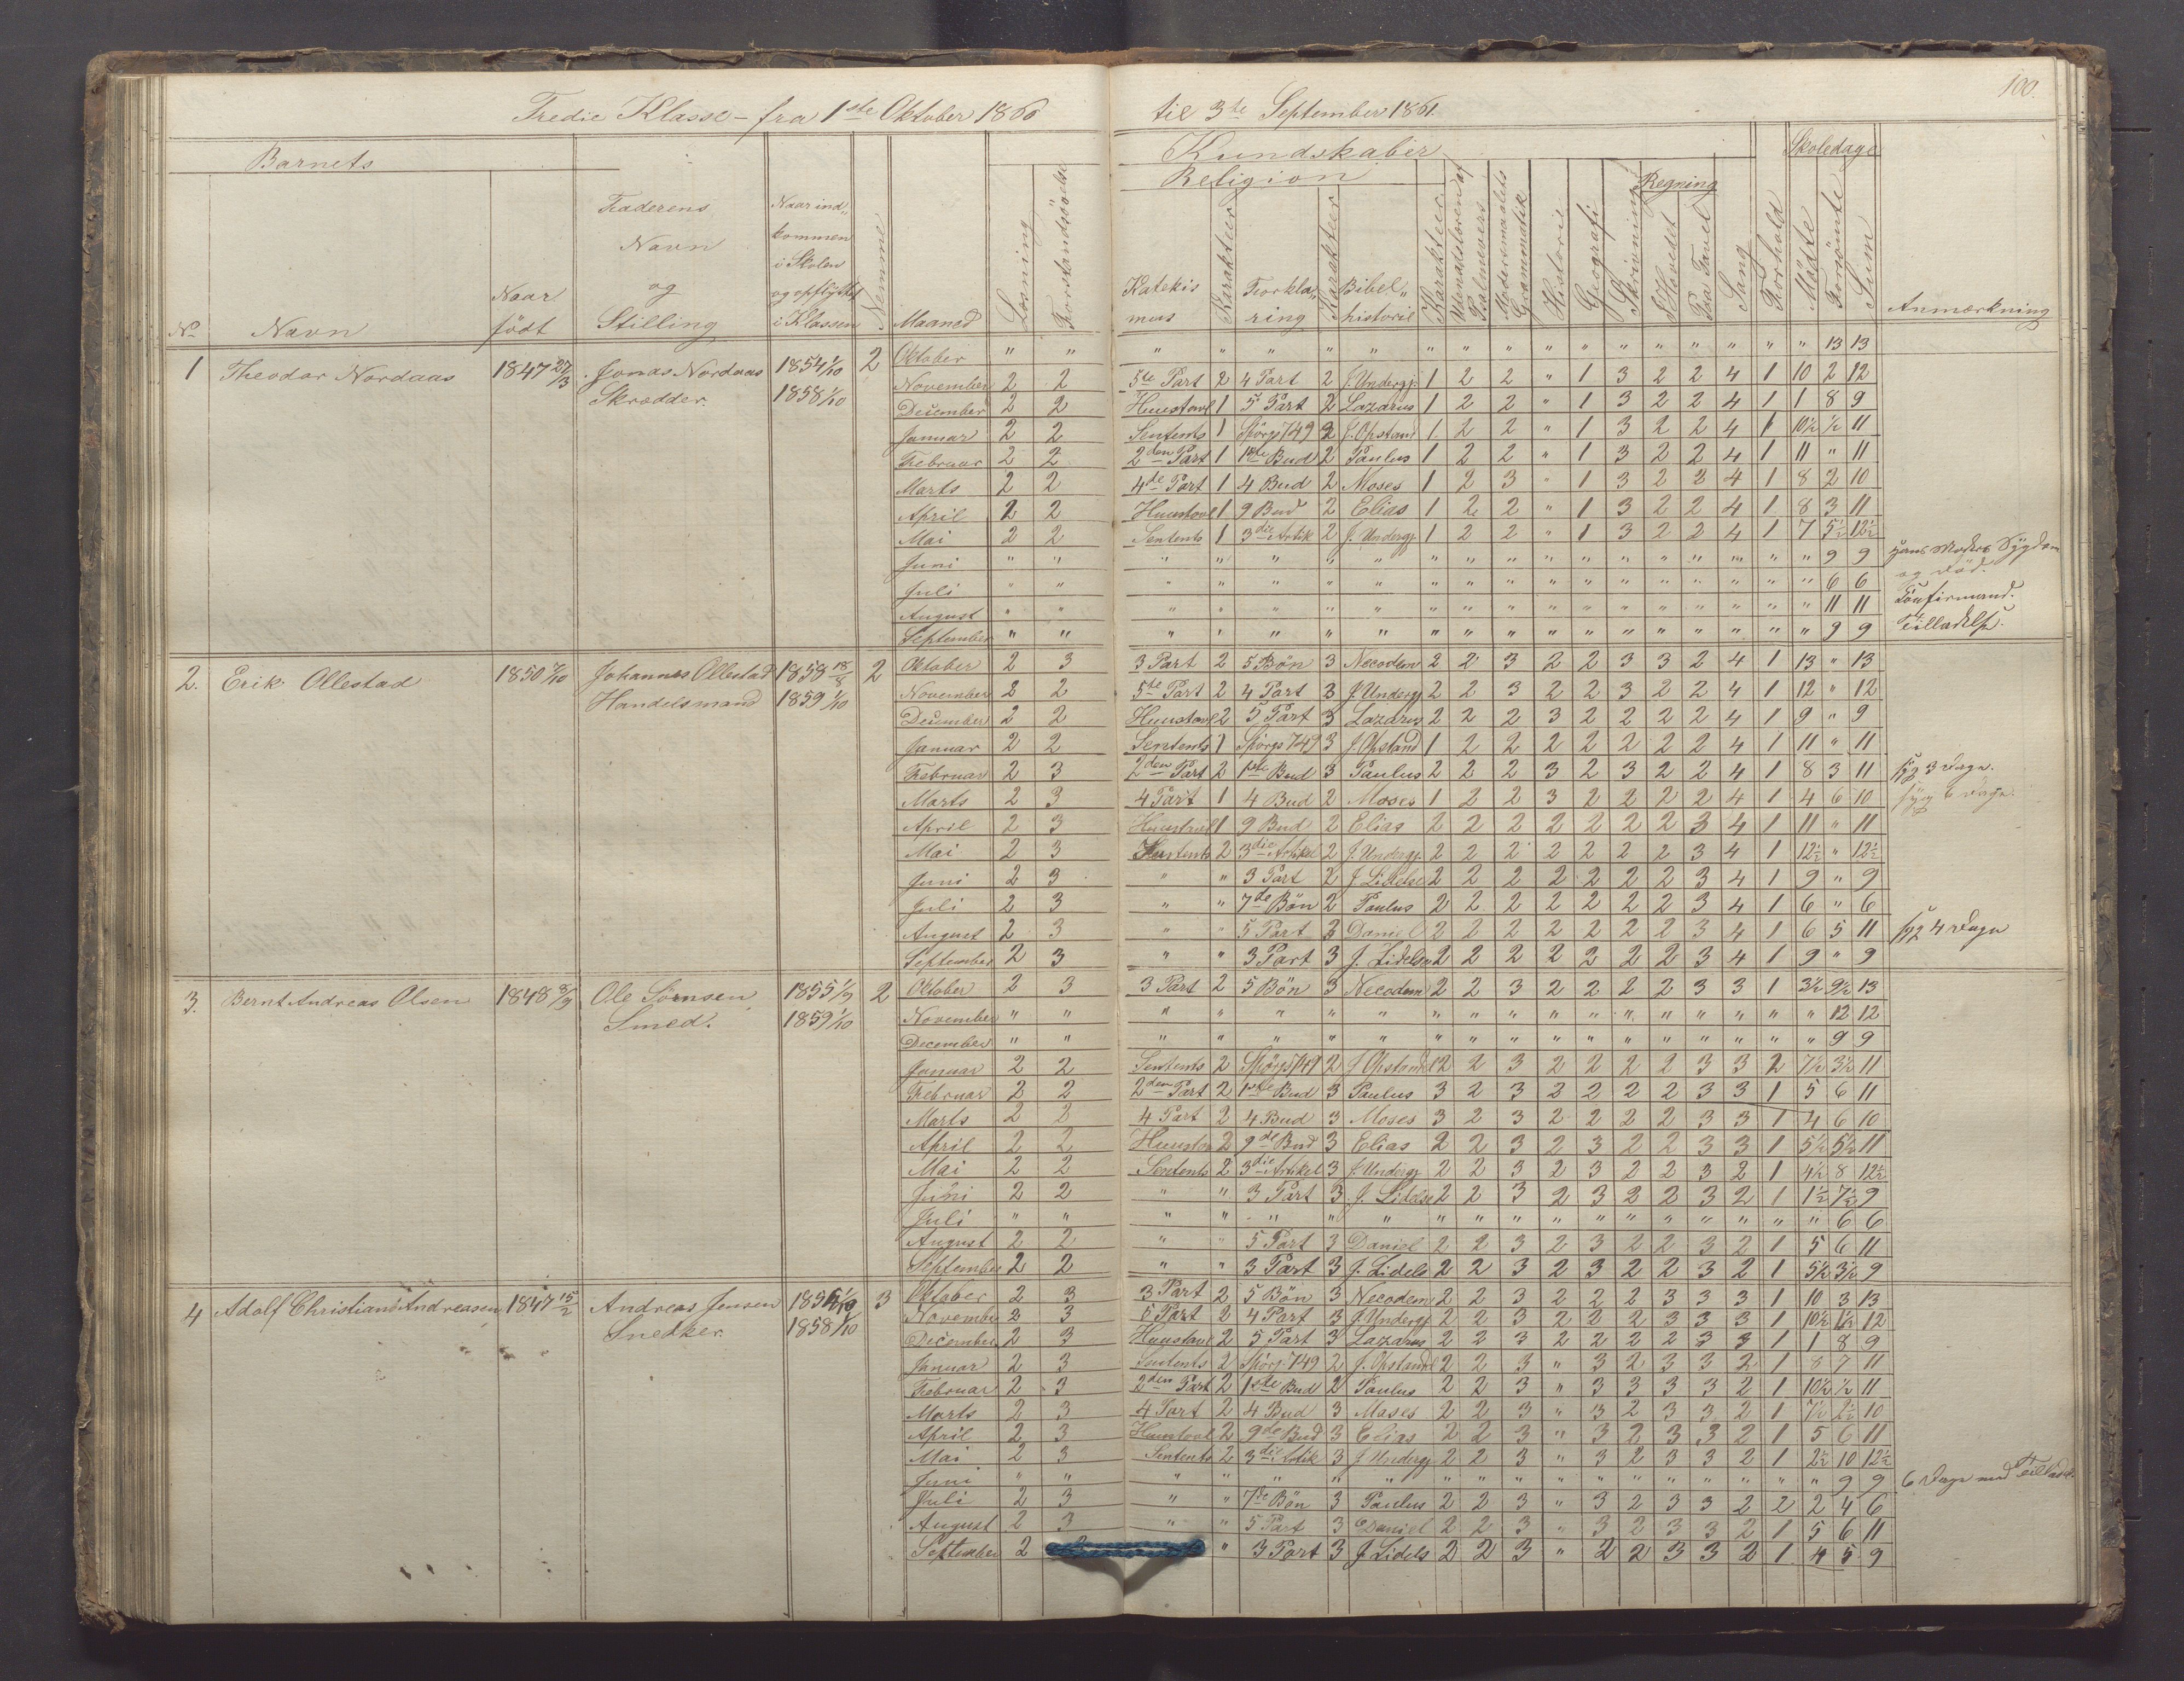 100.
Tredie Klasse - fra 1ste Oktober 1860 til 3te September 1861.
Barnets Kundskaber Skoledage
Religion Regning
No Navn Naar født Faderens Navn og Stilling Naar ind„kommen i Skolen og opflyttet i Klassen Nemme Maaned Læsning Forstandsøvelse Katekismus Karakteer Forkla„ring Karakteer Bibel„historie Karakteer Udenadslæren af Psalmevers Modersmaalets Grammatik Historie Geografi Skrivning I Hovedet Paa Tavel Sang Forhold Mödte Forsömte Sum Anmærkning
1 Theodor Nordaas 1847 27/3 Jonas Nordaas 1854 1/10 2 Oktober " " " " " " " " " " " " " " " " " " " 13 13
Skrædder. 1858 1/10 November 2 2 5te Part 2 4 Part 2 J. Undergj. 1 2 2 " 1 3 2 2 4 1 10 2 12
December 2 2 Huustavl 1 5 Part 2 Lazarus 1 2 2 " 1 3 2 2 4 1 1 8 9
Januar 2 2 Sentents 1 Spörgs 749 2 J. Opstand 1 2 2 " 1 3 2 2 4 1 10½ ½ 11
Februar 2 2 2den Part 1 1ste Bud 2 Paulus 1 2 2 " 1 3 2 2 4 1 11 " 11
Marts 2 2 4de Part 1 4 Bud 2 Moses 1 2 3 " 1 3 2 2 4 1 8 2 10
April 2 2 Huustavl 1 9 Bud 2 Elias 1 2 2 " 1 3 2 2 4 1 8 3 11
Mai 2 2 Sentents 1 3die Artik 2 J. Undergj. 1 2 2 " 1 3 2 2 4 1 7 5½ 12½
Juni " " " " " " " " " " " " " " " " " " " 9 9 Hans Moders Sygdom
og Död.
Juli " " " " " " " " " " " " " " " " " " " 6 6
August " " " " " " " " " " " " " " " " " " " 11 11 Konfirmand.
September " " " " " " " " " " " " " " " " " " " 9 9 Tilladelse.
2. Erik Ollestad 1850 7/10 Johannes Ollestad 1858 18/8 2 Oktober 2 3 3 Part 2 5 Bön 3 Necodem 2 2 3 2 2 3 3 2 4 1 13 " 13
Handelsmand 1859 1/10 November 2 2 5te Part 2 4 Part 3 J. Undergj 2 2 3 2 2 3 2 2 4 1 12 " 12
December 2 2 Huustavl 2 5 Part 3 Lazarus 2 2 2 3 2 2 2 2 4 1 9 " 9
Januar 2 2 Sentents 1 Spörgs 749 3 J. Opstand 1 2 2 2 2 2 2 2 4 1 11 " 11
Februar 2 3 2den Part 2 1ste Bud 3 Paulus 2 2 2 3 2 3 2 2 4 1 8 3 11 syg 3 Dage.
Marts 2 3 4 Part 1 4 Bud 2 Moses 1 2 2 3 2 2 2 2 4 1 4 6 10 syg 6 Dage.
April 2 3 Huustavl 1 9 Bud 2 Elias 2 2 2 2 2 2 2 3 4 1 11 " 11
Mai 2 3 Sentents 2 3die Artikel 2 J. Undergj. 2 2 2 2 2 2 2 3 4 1 12½ " 12½
Juni 2 3 " " 3 Part 2 J. Lidelse 2 2 2 2 2 2 2 3 4 1 9 " 9
Juli 2 3 " " 7de Bön 2 Paulus 2 2 2 2 2 2 2 3 4 1 6 " 6
August 2 3 " " 5 Part 3 Daniel 2 2 2 2 2 2 2 3 4 1 6 5 11 syg 4 Dage
September 2 3 " " 3 Part 3 J. Lidelse 2 2 2 2 2 2 2 3 4 1 9 " 9
3. Bernt Andreas Olsen 1848 8/9 Ole Sörnsen 1855 1/9 2 Oktober 2 3 3 Part 2 5 Bön 3 Necodem 2 2 3 2 2 2 2 3 3 1 3½ 9½ 13
Smed. 1859 1/10 November " " " " " " " " " " " " " " " " " " " 12 12
December " " " " " " " " " " " " " " " " " " " 9 9
Januar 2 2 Sentents 2 Spörgs 749 2 J Opstand 2 2 3 2 2 2 2 3 3 2 7½ 3½ 11
Februar 2 2 2den Part 2 1ste Bud 3 Paulus 3 2 3 2 2 2 2 3 3 1 5 6 11
Marts 2 2 4 Part 2 4 Bud 3 Moses 3 2 3 2 2 2 2 3 3 1 4 6 10
April 2 2 Huustav 2 9de Bud 3 Elias 2 2 3 2 3 2 2 3 3 1 5½ 5½ 11
Mai 2 2 Sentents 2 3die Artikel 3 J. Undergj 2 2 3 2 3 2 2 3 2 1 4½ 8 12½
Juni 2 2 " " 3 Part 3 J. Lidelse 2 2 3 2 3 2 2 3 2 1 1½ 7½ 9
Juli " " " " " " " " " " " " " " " " " " " 6 6
August 2 2 " " 5 Part 3 Daniel 2 2 3 2 3 2 2 3 2 1 5 6 11
September 2 2 " " 3 Part 3 J. Lidels 2 2 3 2 3 2 2 3 2 1 5½ 3½ 9
4 Adolf Christian Andreasen 1847 15/2 Andreas Jensen 3 Oktober 2 3 3 Part 2 5 Bön 3 Necodem 2 2 3 2 2 2 3 3 3 1 10 3 13
Snedker. 1858 1/10 November 3 3 5 Part 2 4 Part 3 J. Undergj 2 2 3 2 2 2 3 3 3 1 10½ 1½ 12
December 2 3 Huustavl 2 5 Part 3 Lazarus 2 2 3 2 2 2 2 3 3 1 1 8 9
Januar 2 3 Sentents 2 Spörgs 749 2 J. Opstand 2 2 3 " 3 2 3 3 2 1 8 7 11
Februar 2 3 2den Part 2 1ste Bud 2 Paulus 2 2 3 " 3 3 3 3 2 1 10½ ½ 11
Marts 2 3 4 Part 2 4 Bud 3 Moses 2 2 3 " 3 2 3 3 2 1 7½ 2½ 10
April 2 3 Huustavl 2 9de Bud 3 Elias 2 2 3 " 3 2 3 3 2 1 5 6 11
Mai 2 3 Sentents 2 3die Artik 3 J Undergj 2 2 3 " 3 2 3 3 2 1 2½ 10 12½
Juni " " " " " " " " " " " " " " " " " " " 9 9 6 Dage med Tillad.
Juli 2 3 " " 7de Bön 3 Paulus 2 2 3 " 3 2 3 3 2 2 2 4 6
August 2 3 " " 5 Part 3 Daniel 2 2 3 " 3 2 3 3 2 1 5 6 11
September 2 " 3 Part 3 J Lidels 2 2 3 " 2 2 3 3 2 1 4 5 9